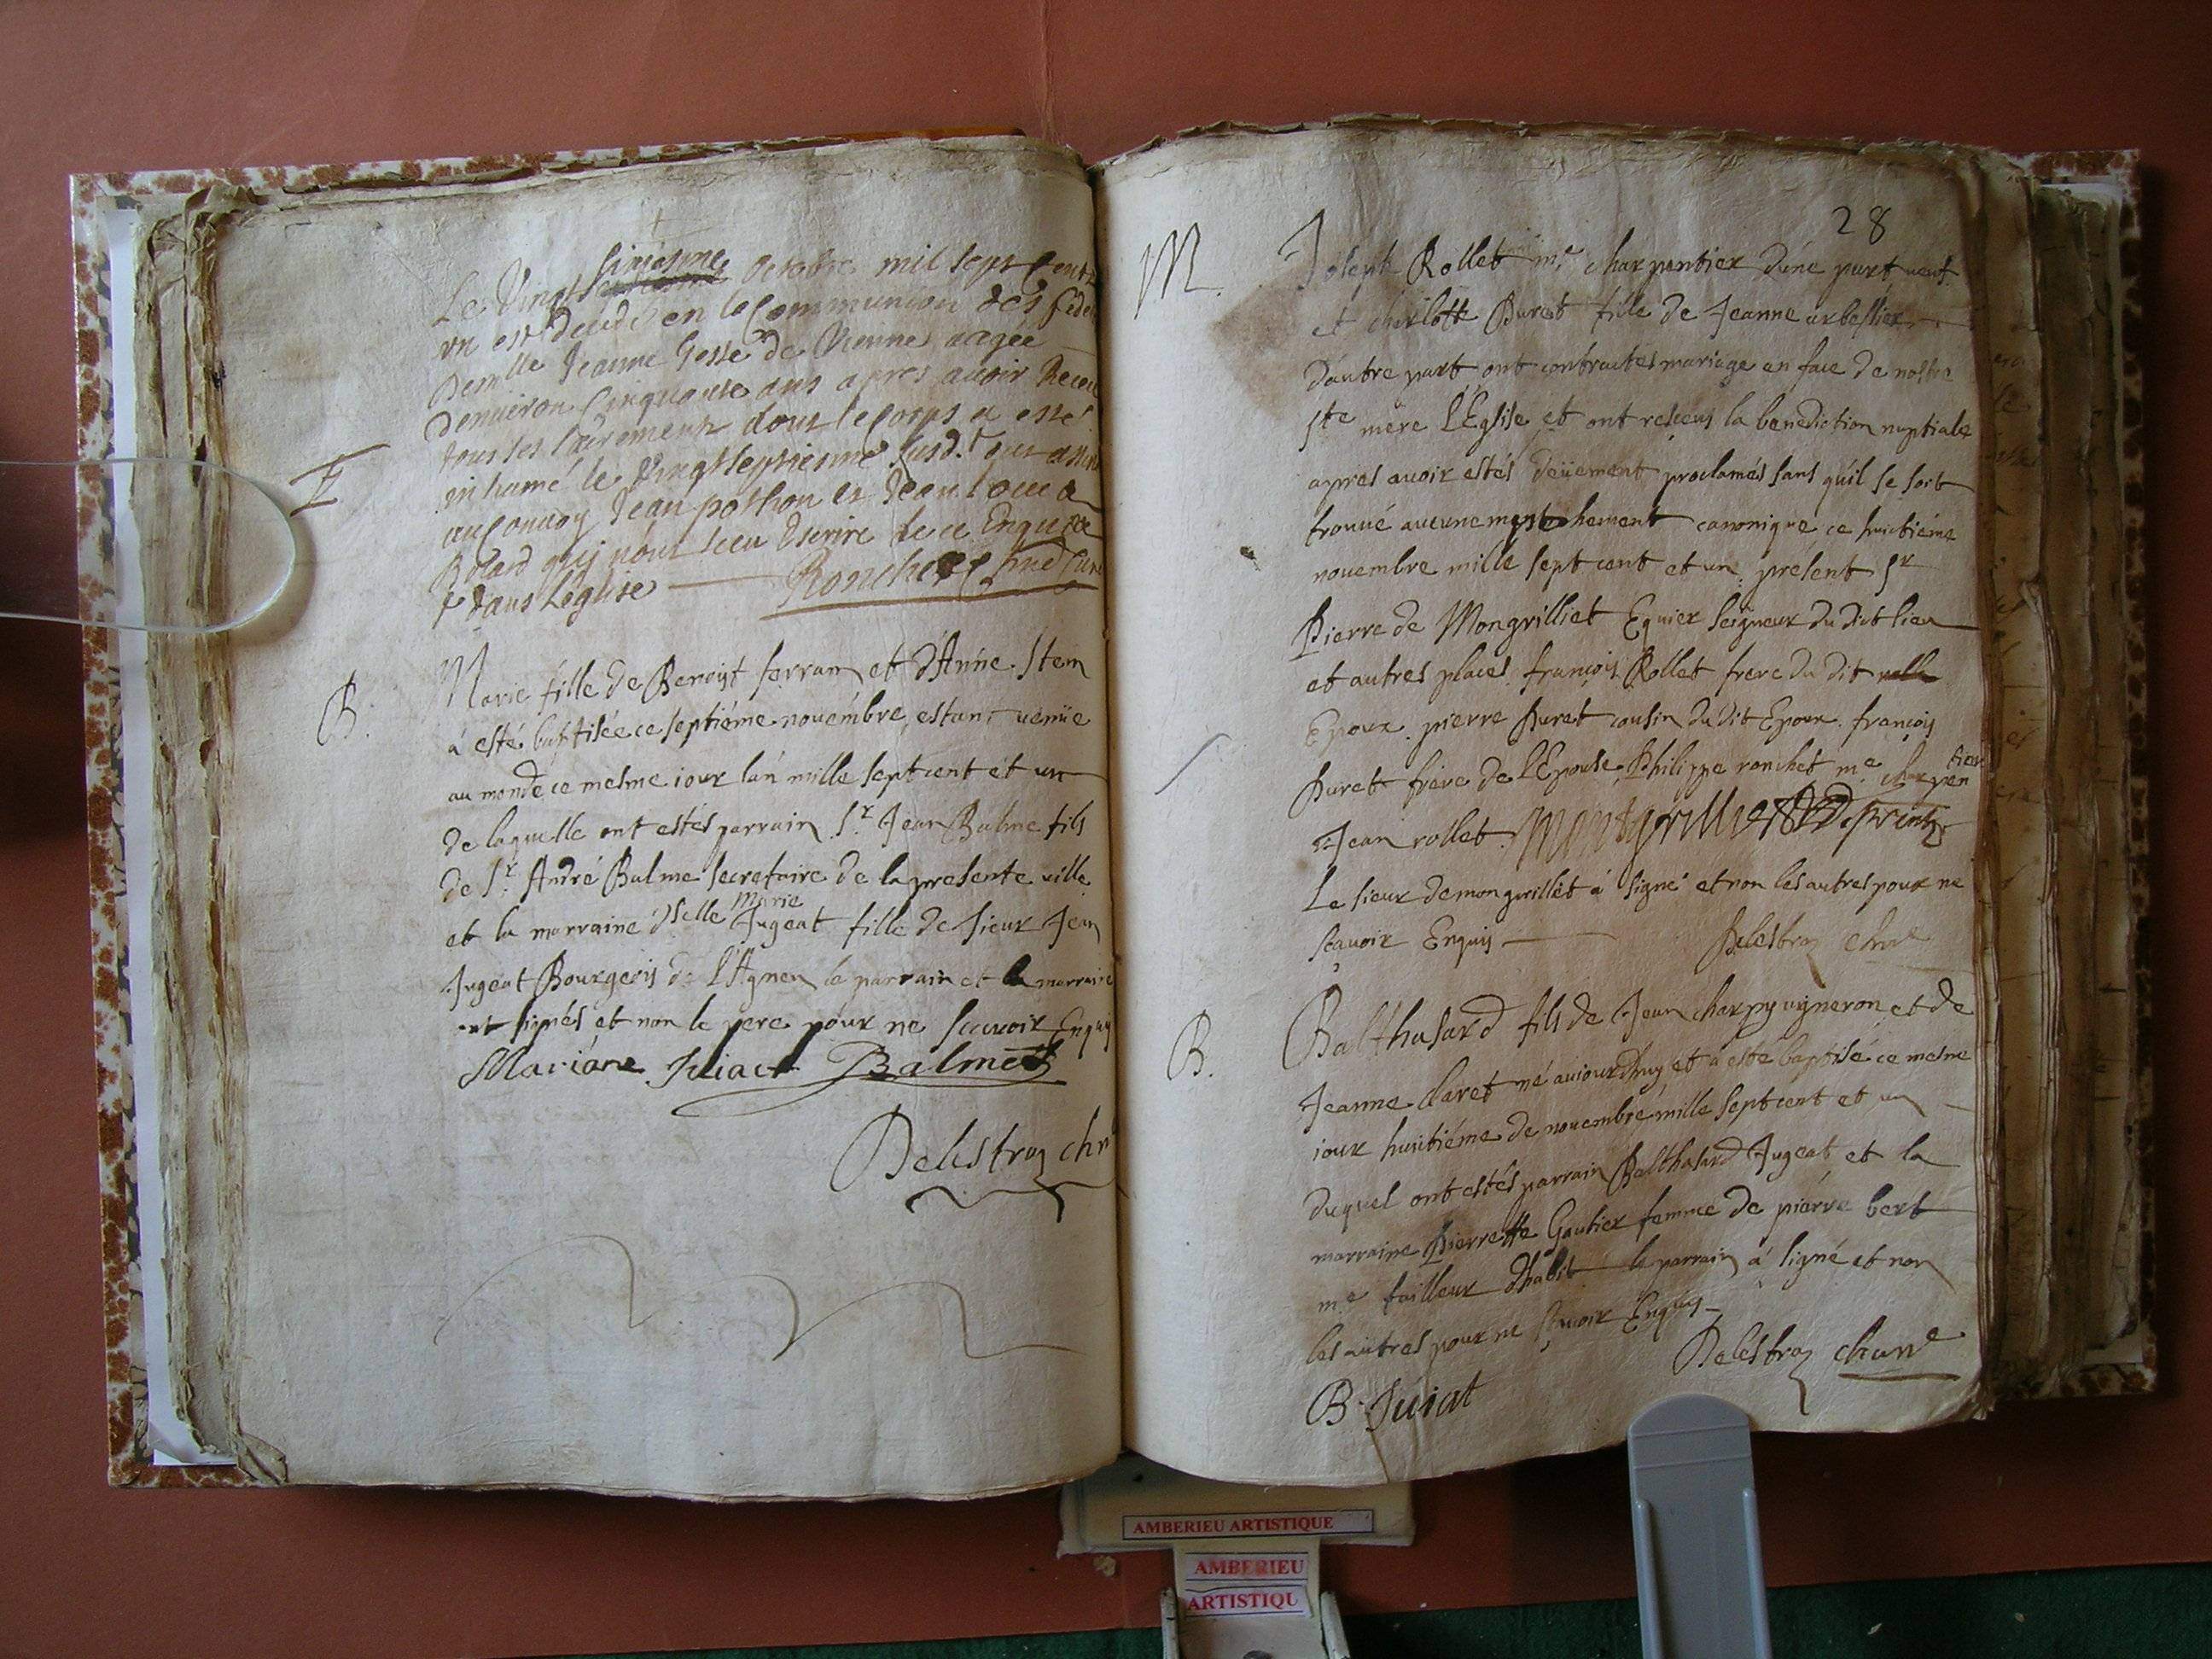 Le Vingt sixiesme octobre mil sept cents
un est decedé en la Communion des fidel
Demlle Jeanne Gesse de Vienne aagée
denuiron Cinquante ans apres auoir Receu
tous les sacrements dont le corps a esté
E
inhumé le Vingtseptiesme susd.t ont assisté
au Conuoy Jean pothon et Jean Louis
Bolard quj n'ont sceu Escrire de ce Enquis
dans Leglise
Ronchet
B.
Marie fille de Benoist ferran et d'Anne Stein
à esté baptisée ce septiéme nouembre, estant venüe
au monde ce mesme iour lan mille sept cent et un
de laquelle ont estés parrain S.r Jean Balme fils
de S.r André Balme secretaire de la presente ville
Marie
et la marraine dselle Jugeat fille de sieur Jean
Jugeat Bourgeois de L'Agneu le parrain et la marraine
ont signés et non le pere pour ne scauoir Enquis
Mariane Juiact Balme
Delestraz chne
28
M.
Joseph Rollet m.e charpentier d'une part
et charlotte Duret fille de Jeanne arbessier
d'autre part ont contractés mariage en face de nostre
ste mere L'Eglise et ont receus la benediction nuptiale
apres auoir estés deüement proclamés sans qu'il se soit
trouué aucun empeschement canonique ce huictiéme
nouembre mille sept cent et un, présent Sr
Pierre de Mongrilliet Equier seigneur du dict lieu
et autres places, françois Rollet frere du dit
Epoux, pierre Duret cousin du dit Epoux, françois
Duret frère de L'Epouse, Philippe ronchet m.e charpentier
Jean rollet. Montgrilliet
Le sieur de mongrillet à signé et non les autres pour ne
sçauoir Enquis
Delestraz chne
B.
Balthasard fils de Jean charpy vigneron, et de
Jeanne claret né auiourdhuy et à esté baptisé ce mesme
iour huictiéme de nouembre mille sept cent et un
duquel ont estés parrain Balthasard Jugeat, et la
marraine Pierrette Gautier femme de pierre bert
m.e tailleur d'habit le parrain à signé et non
les autres pour ne sçauoir Enquis
Delestraz chane
B. Juiat
AMBERIEU ARTISTIQUE
AMBERIEU
ARTISTIQU